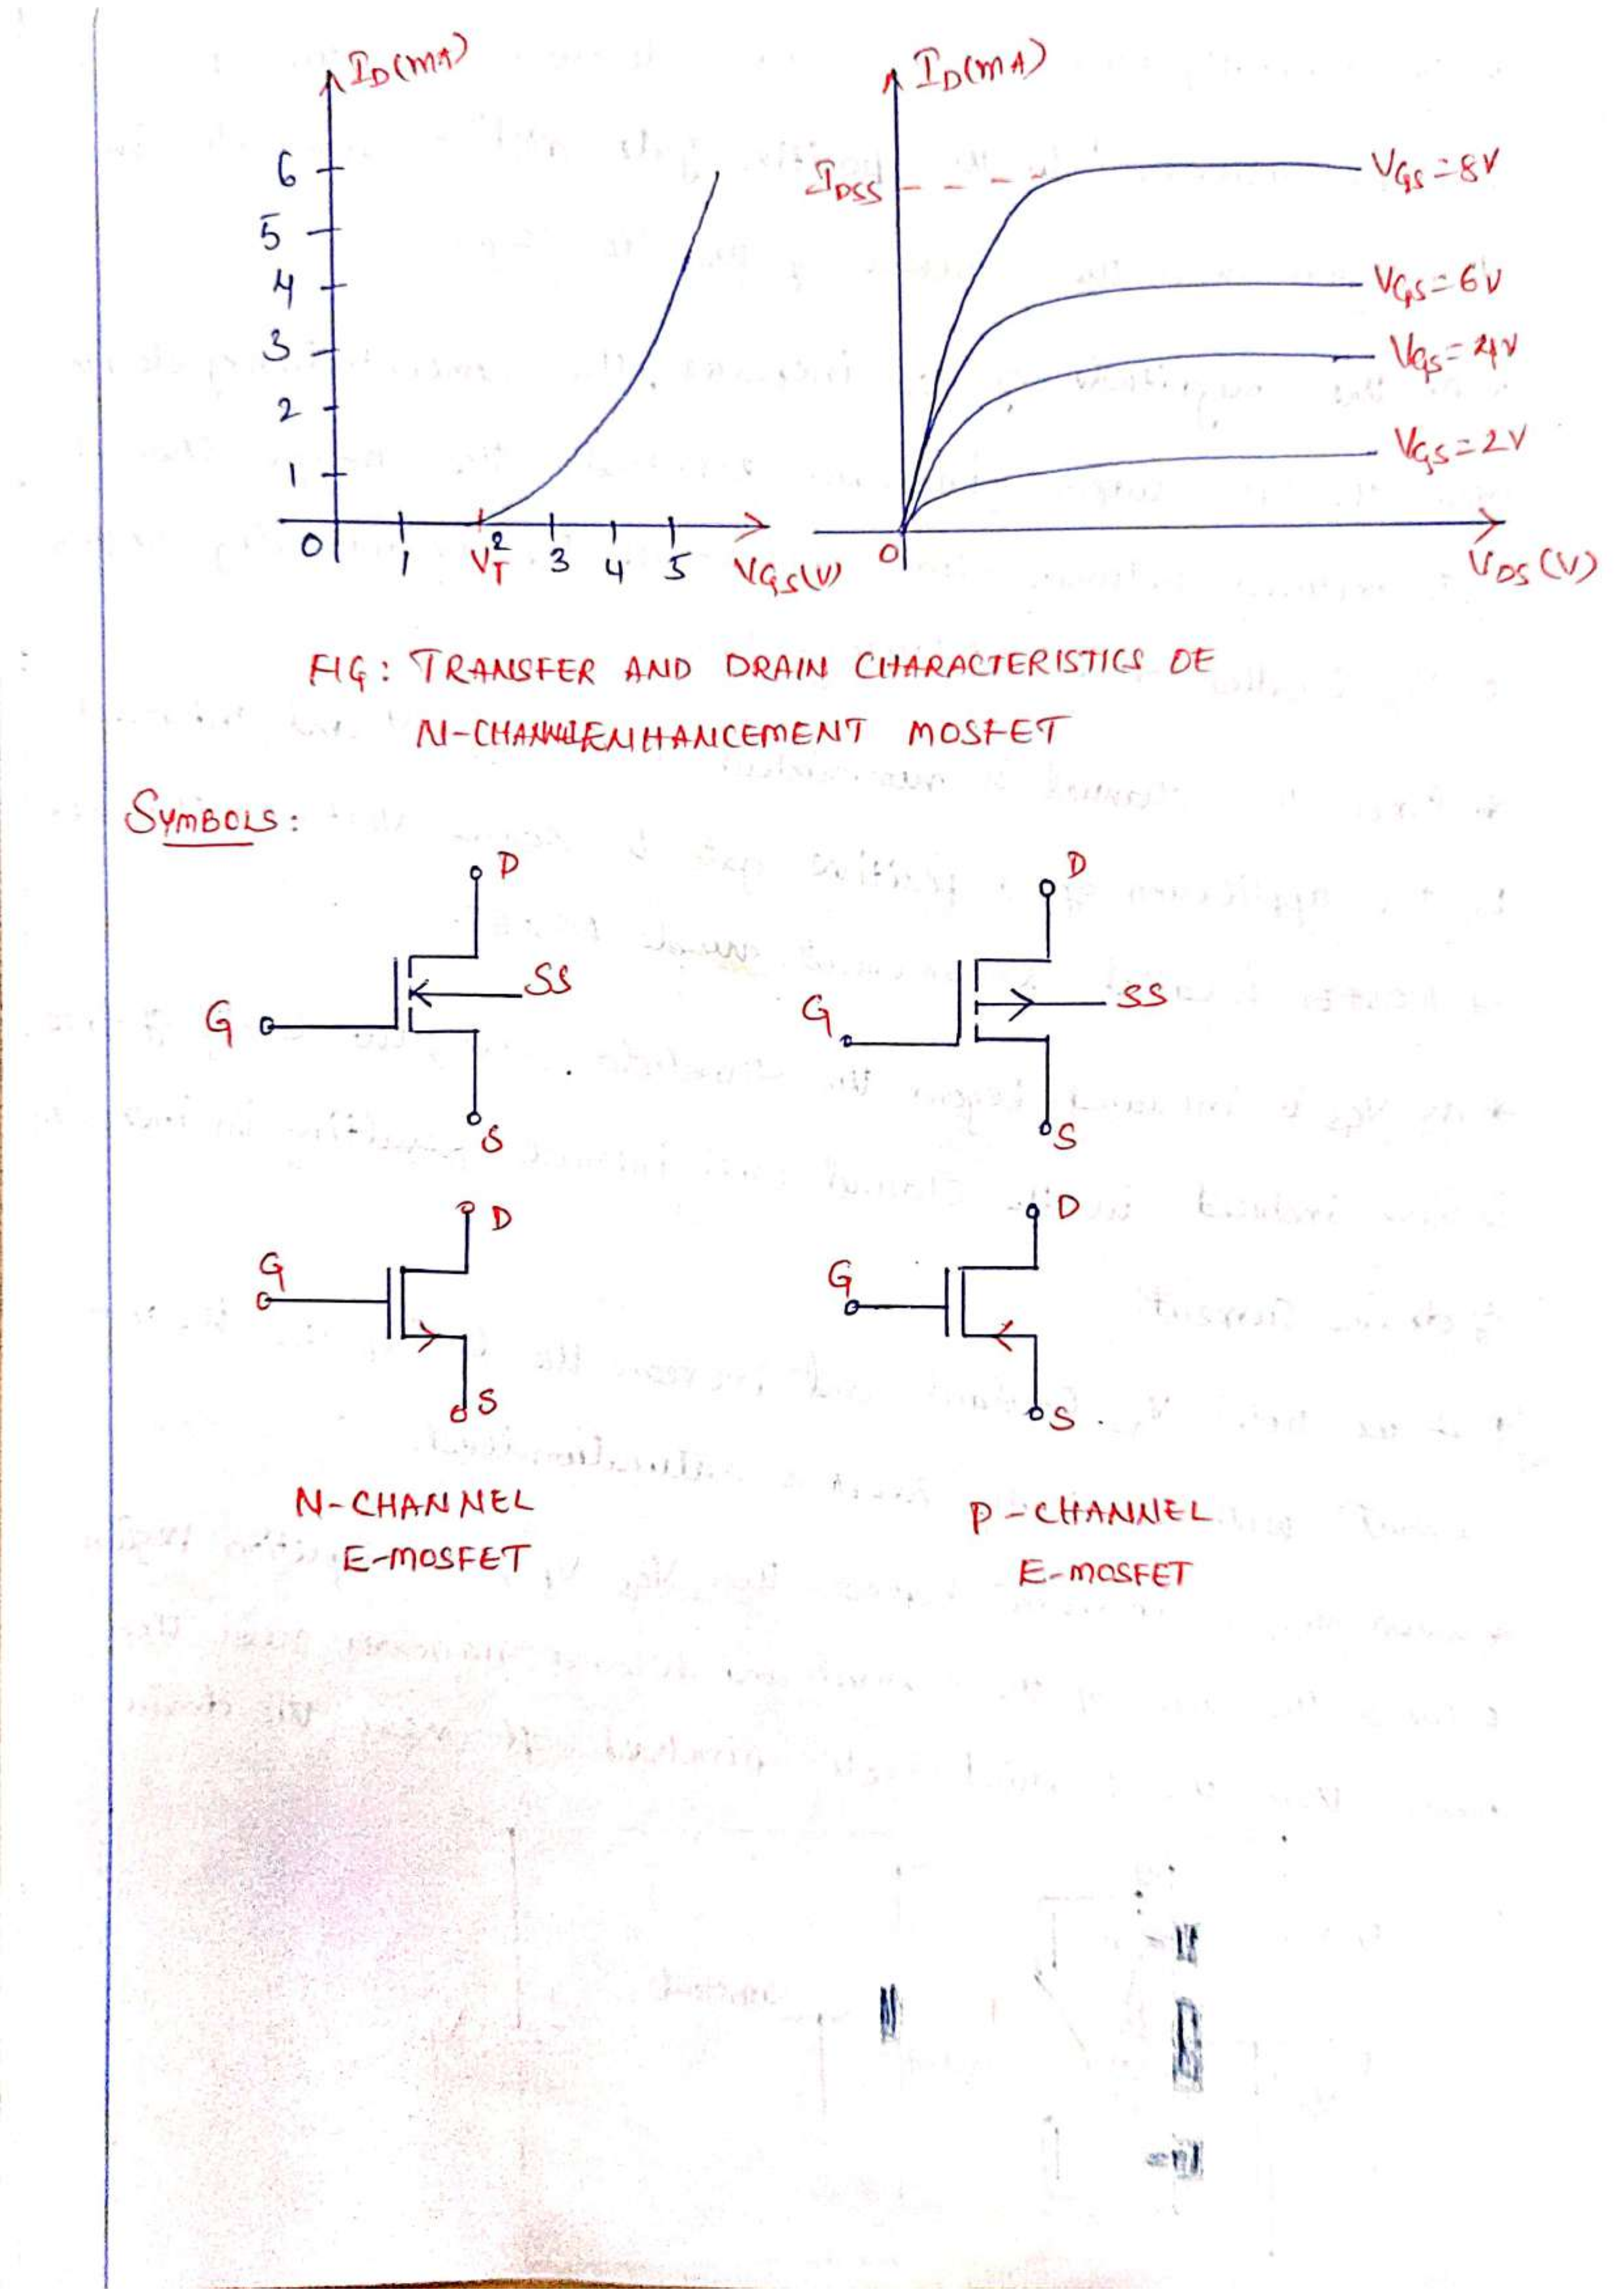 I_D(mA)
6
5
4
3
2
1
0
1
V_T
2
3
4
5
V_GS(V)
I_D(mA)
I_DSS
V_GS=8V
V_GS=6V
V_GS=4V
V_GS=2V
0
V_DS(V)
FIG: TRANSFER AND DRAIN CHARACTERISTICS OF
N-CHANNEL ENHANCEMENT MOSFET
SYMBOLS:
D
SS
G
S
D
SS
G
S
D
G
S
D
G
S
N-CHANNEL
E-MOSFET
P-CHANNEL
E-MOSFET